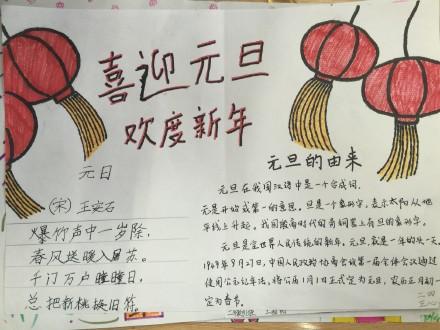 喜迎元旦
欢度新年
元日
(宋)王安石
爆竹声中一岁除,
春风送暖入屠苏。
千门万户曈曈日,
总把新桃换旧符。
元旦的由来
元旦在我国汉语中是一个合成词,
元是开始或第一的意思。旦是一个象形字,表示太阳从地
平线上升起。我国殷商时代的青铜器上有旦的象形字。
元旦是全世界人民传统的新年。元旦,就是一年的头一天。
1949年9月27日,中国人民政治协商会议第一届全体会议通过
使用公元纪年法,将公历1月1日正式定为元旦,农历正月初一
定为春节。